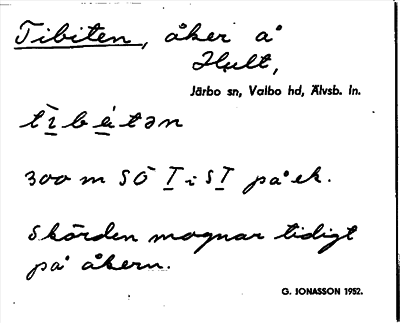 Tibiten, åker å
Hult,
Järbo sn, Valbo hd, Älvsb. ln.
tìbétən
300 m SÖ I i SI på ek.
Skörden mognar tidigt
på åkern.
G. JONASSON 1952.